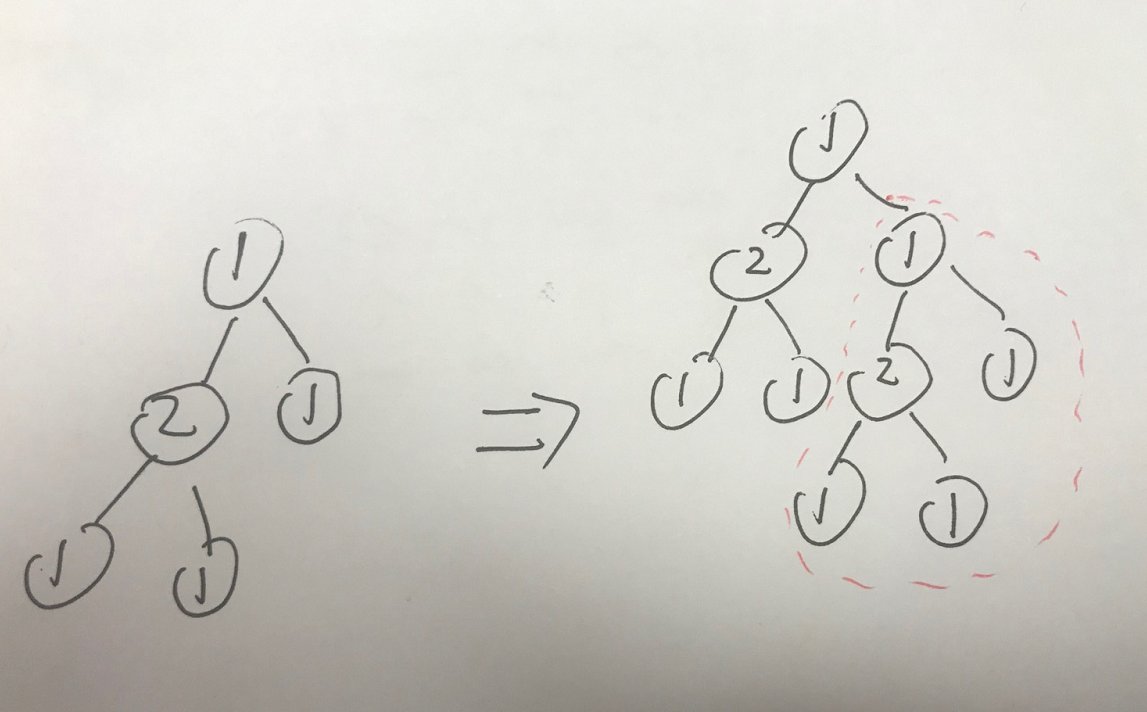 1
2 1
1 1
⇒
1
2 1
1 1 2 1
1 1